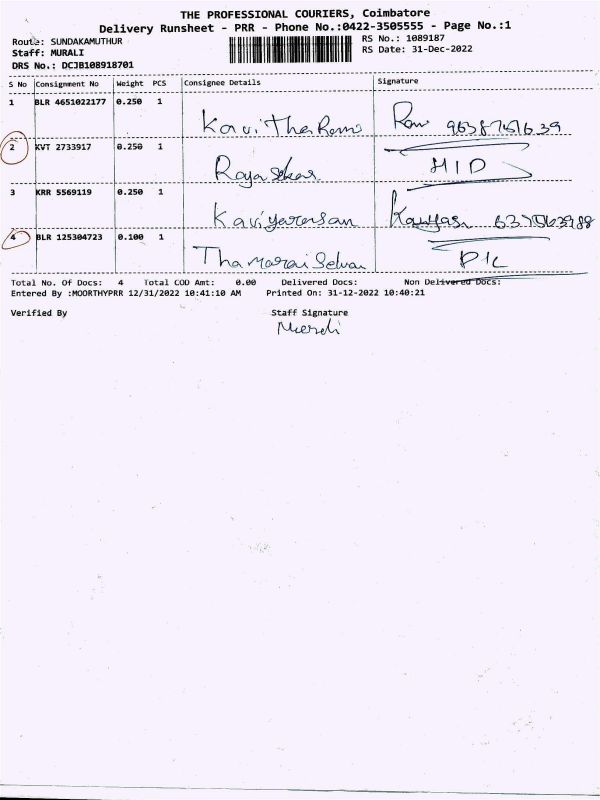 THE PROFESSIONAL COURIERS, Coimbatore
Delivery Runsheet - PRR - Phone No.:0422-3505555 - Page No.:1
Route: SUNDAKAMUTHUR RS No.: 1089187
Staff: MURALI RS Date: 31-Dec-2022
DRS No.: DCJB108918701
S No Consignment No Weight PCS Consignee Details Signature
1 BLR 4651022177 0.250 1
Kavitha Ram Ram
2 KVT 2733917 0.250 1
Rajasekar H/D
3 KRR 5569119 0.250 1
Kaviyarasan
4 BLR 125304723 0.100 1
Thamarai Selvan D/L
Total No. Of Docs: 4 Total COD Amt: 0.00 Delivered Docs: Non Delivered Docs:
Entered By :MOORTHYPRR 12/31/2022 10:41:10 AM Printed On: 31-12-2022 10:40:21
Verified By Staff Signature